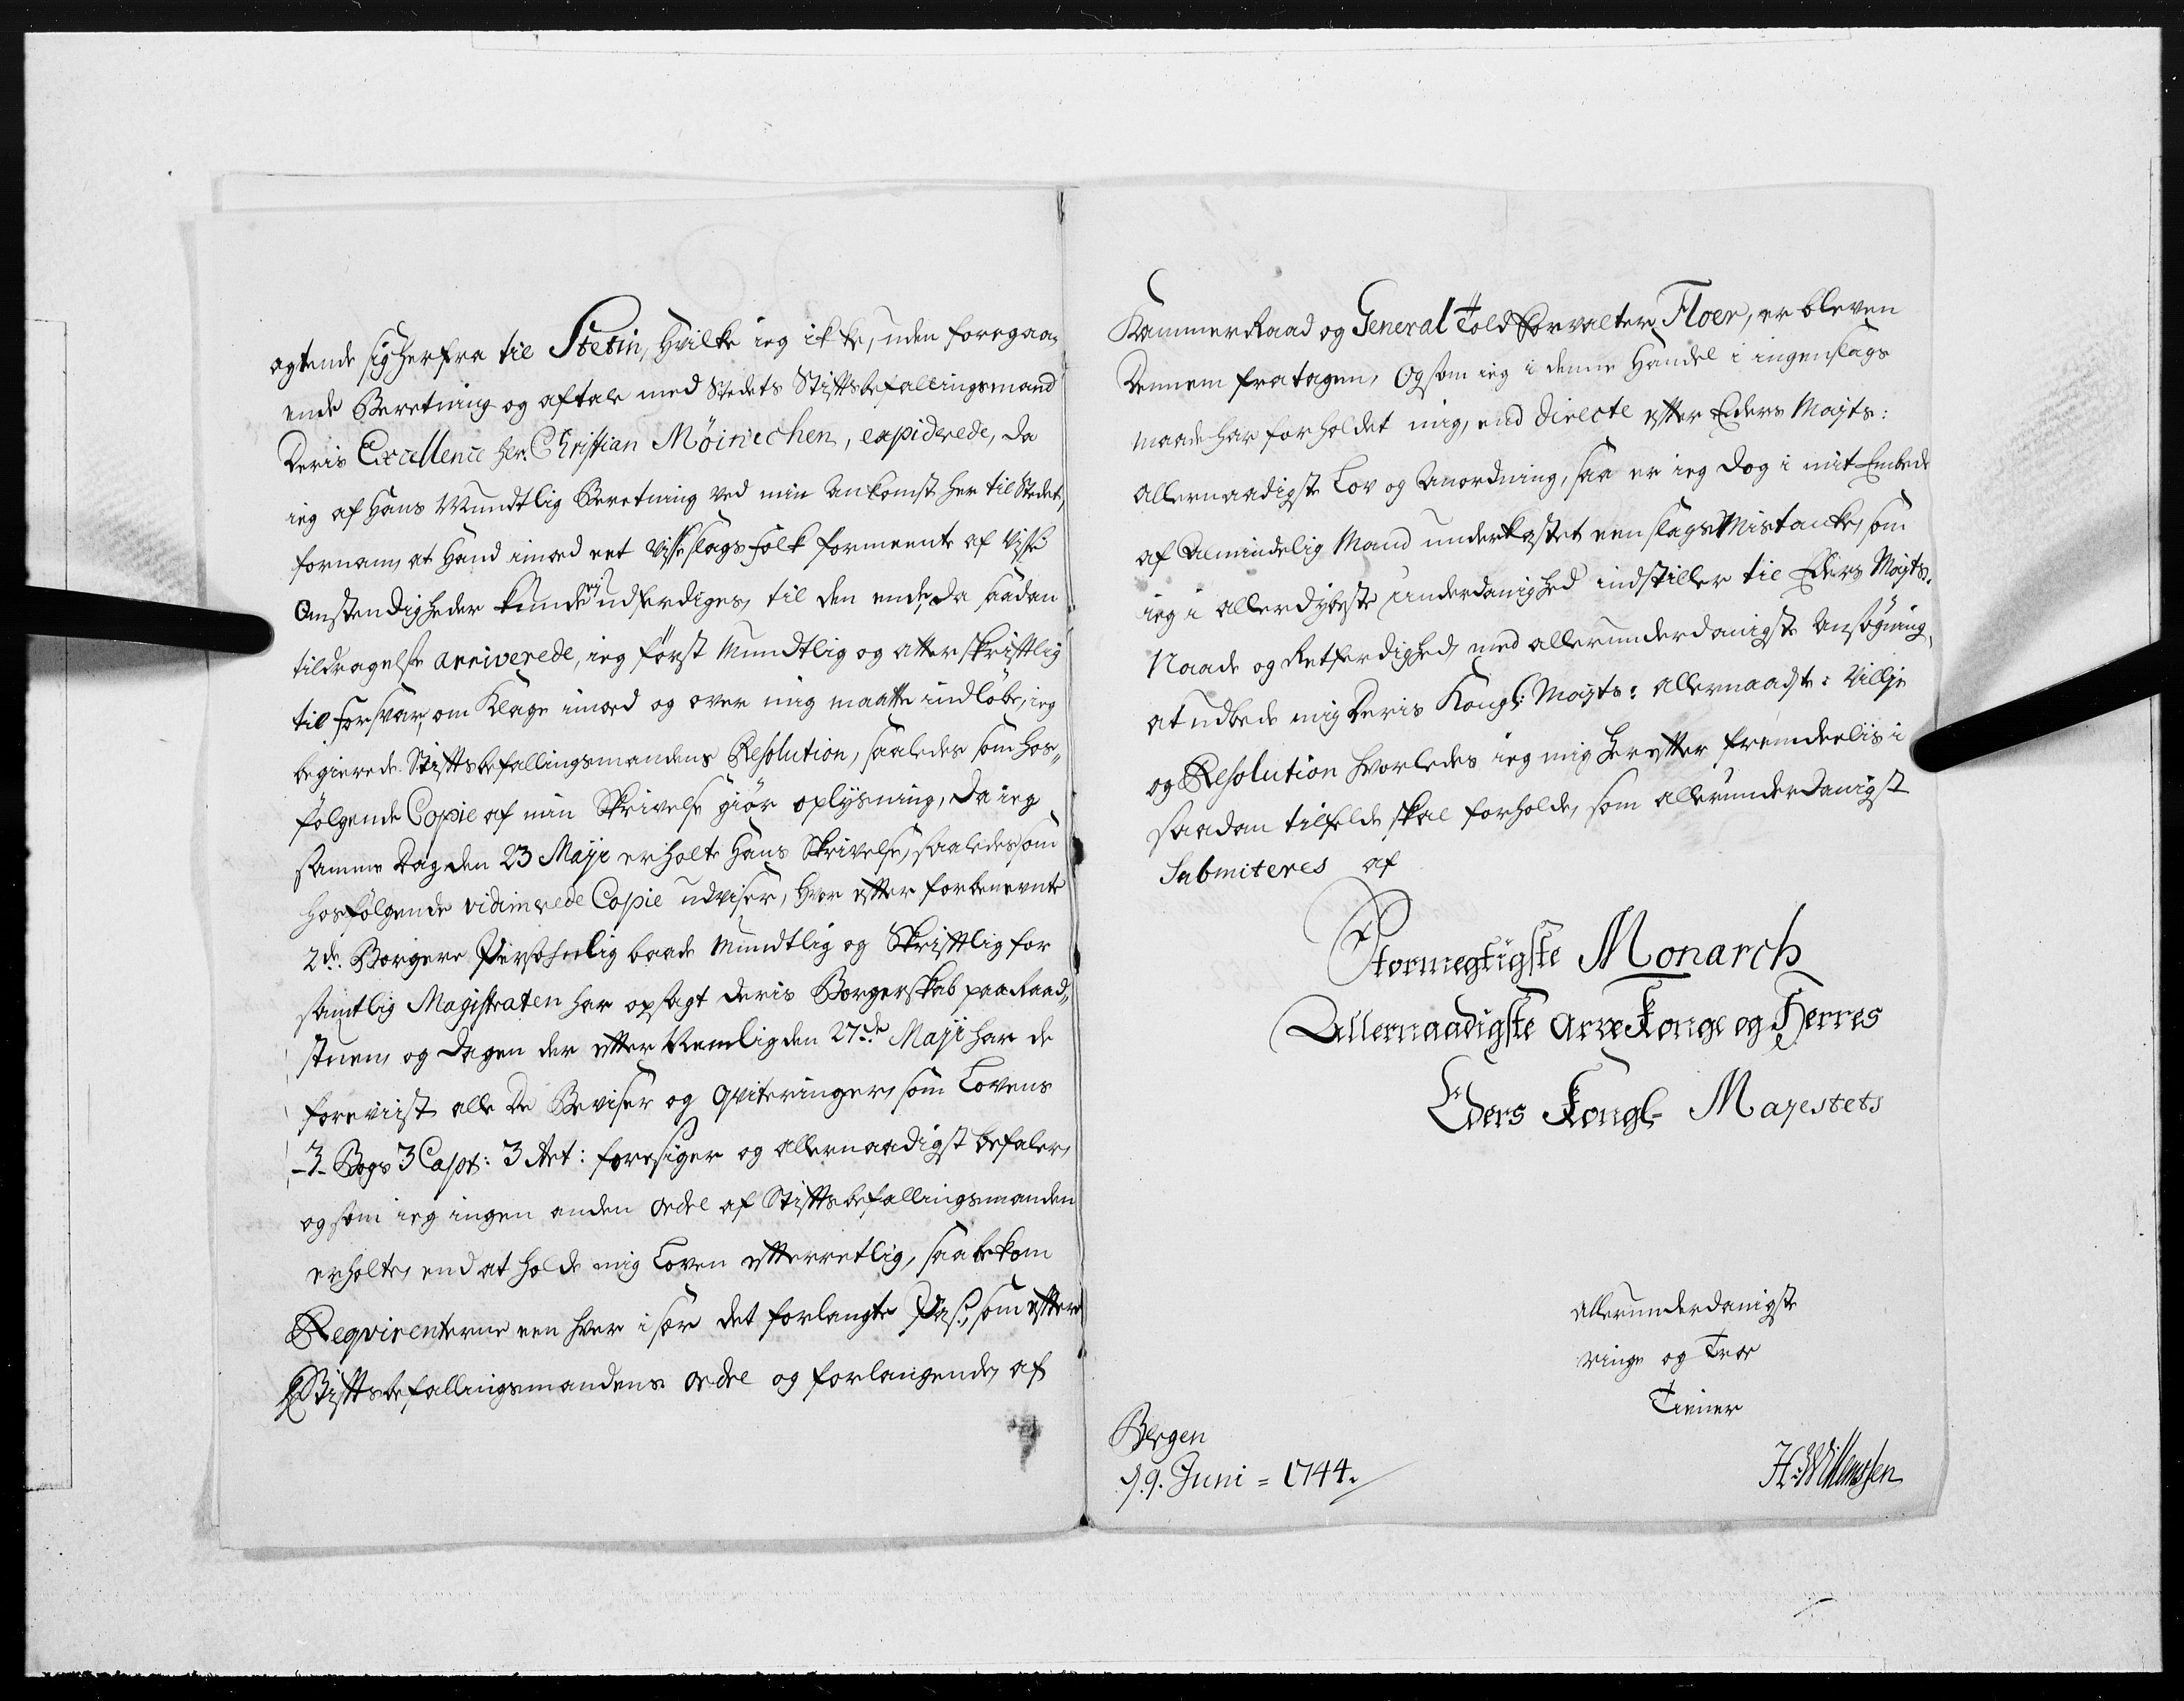 agtende sig herfra til Stetin, Hvilke ieg ikke, uden foregaa-
ende Beretning og aftale med Stedets Stiftsbefallingsmand
Deris Excellence Her: Christian Möinichen, expiderede, da
ieg af Hans Mundtlig Beretning ved min Ankomst her til Stedet,
fornam, at Hand imod eet visse slags Folk formeente af visse
Omstendigheder kunde ey udferdiges, til den ende, da saadan
tildragelse arriverede, ieg först Mundtlig og atter skriftlig
til forsvar, om Klage imod og over mig maatte indlöbe, ieg
begierede Stiftsbefallingsmandens Resolution, saaledes som hos-
fölgende Copie af min Skrivelse giör oplysning, da ieg
samme Dag den 23 Maji erholte Hans Skrivelse, saaledes som
hosfölgende vidimerede Copie udviser, hvor efter forbenevnte
2de. Borgere Persohnlig baade Mundtlig og Skriftlig for
samtlig Magistraten har opsagt deris Borgerskab paa Raad-
stuen, og Dagen der efter Nemlig den 27de Maji har de
foreviist alle De Beviser og Qviteringer, som Lovens
-3- Bogs 3 Capt: 3 Art: foresiger og allernaadigst befaler,
og som ieg ingen anden ordre af Stiftsbefallingsmanden
erholte, end at holde mig Loven efterretlig, saa bekom
Reqvirenterne een hver i sær det forlangte Pas, som efter
Stiftsbefallingsmandens ordre og forlangende, af
KammerRaad og General Told Forvalter Floer, er bleven
Dennem fratagen, Og som ieg i denne Handel i ingenslags
maade har forholdet mig, end directe efter Eders Majts:
Allernaadigste Lov og Anordning, saa er ieg dog i mit Embede
af Almindelig Mand underkastet een slags Mistanke, som
ieg i allerdybeste Underdanighed indstiller til Eders Majts:
Naade og Retferdighed, med allerunderdanigste Ansögning,
at udbede mig Deris Kongl: Majts: allernaadste: Villje
og Resolution hvorledes ieg mig herefter fremdeelis i
saadan tilfelde skal forholde, som allerunderdanigst
Submiteres af
Stormegtigste Monarch
Allernaadigste Arve Konge og Herres
Eders Kongl- Majestets
allerunderdanigste
ringe og Troe
Tiener
Bergen
d. 9. Juni = 1744.
H: Willemssen